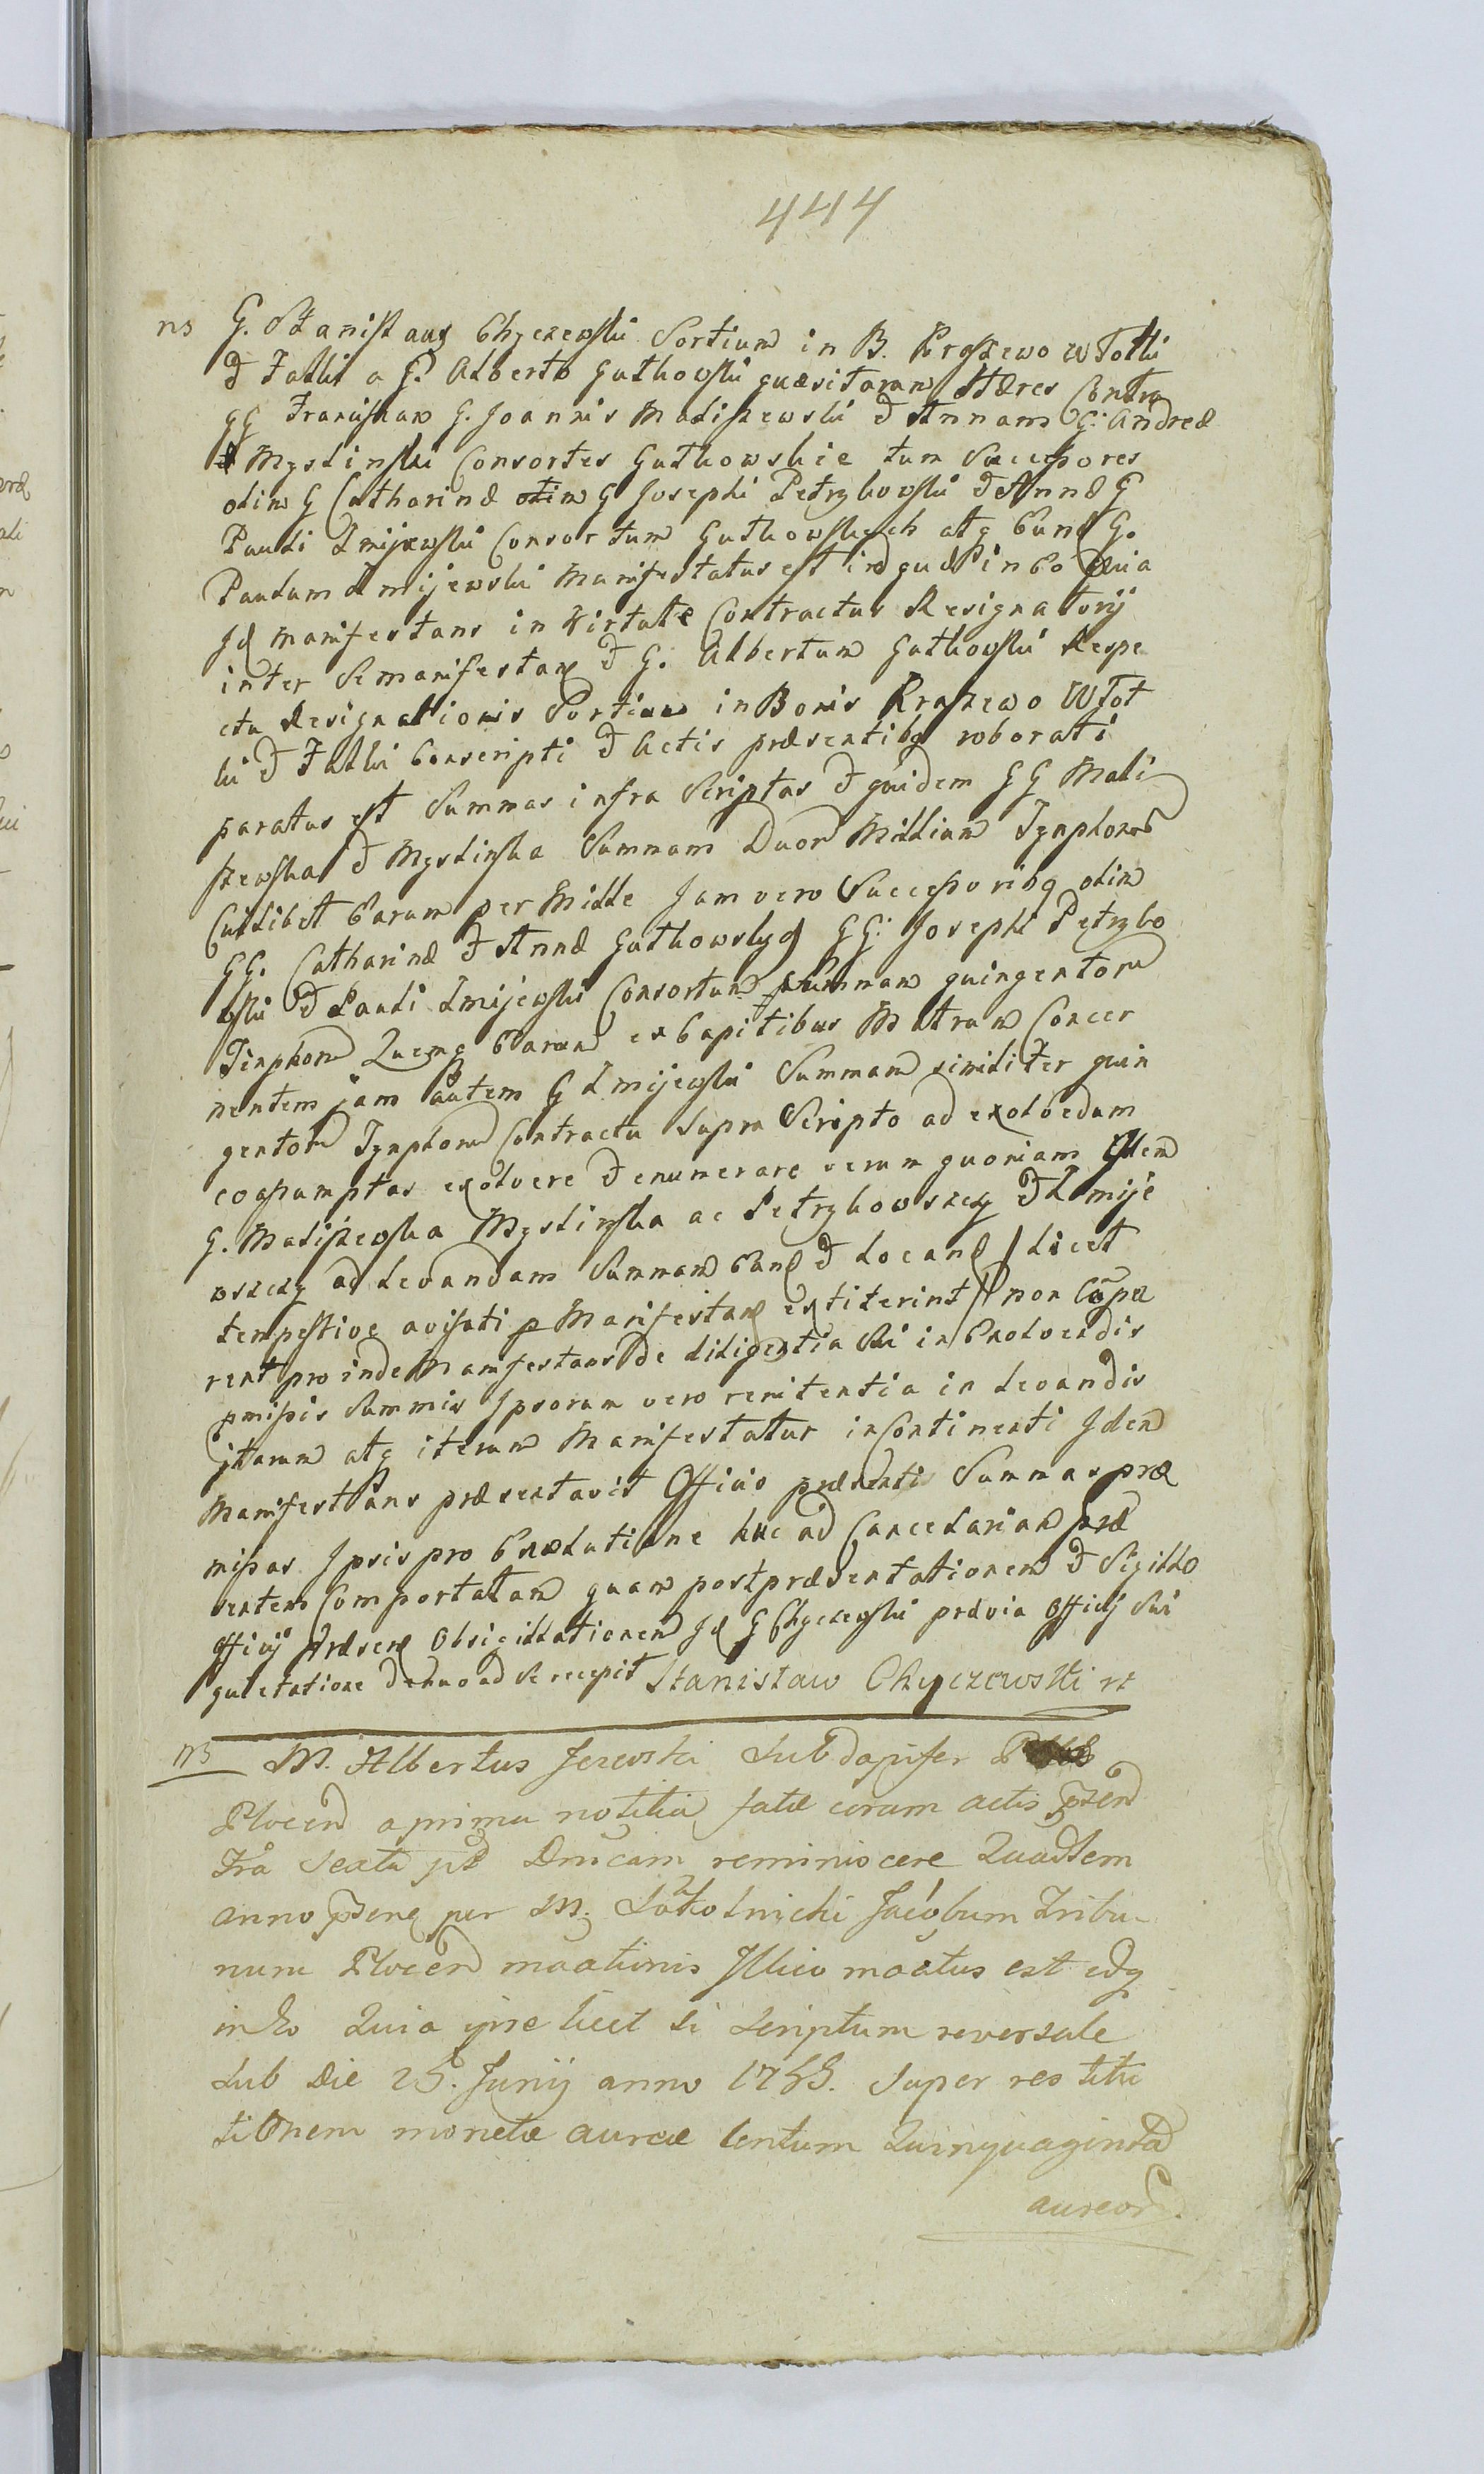 444
ns G. Stanislaus Chyczewski Sortium in B. Kraszewo Wſzotki
& Falki a G. Alberto Gutkowski quæsitarum Hæres Contra
GG Franciscam G. Joannis Maliszewski & Annam G. Andreæ
Myslinski Consortes Gutkowskie tum Successores
olim G Catharinæ olim G Josephi Petrykowski & Annæ G
Pauli Zmijewski Consortum Gutkowskich atq Eund G.
Paulum Zmijewski Manifestatus est idque in Eo Quia
Id Manifestans in Virtute Contractus Resignatorij
inter Se manifestan & G. Albertum Gutkowski Respe
ctu Resignationis Sortium in Bonis Kraszewo
ki & Falki Conscripti & Actis præsentibq roborati
paratus est Summas infra Scriptas & quidem GG Mali
szewska & Myslinska Summam Duor Millium Tynphor
Cuilibet Earum per Mille Jam vero Successoribq olim
GG. Catharinæ & Annæ Gutkowskych GG. Josephi Petryko
wski & Pauli Zmijewski Consortum Summam quingentor
Tinphor Quemq Earum ex Capitibus Matrum Concer
nentem jam autem G Zmijewski Summam similiter quin
gentor Tynphor Contractu Supra Scripto ad exolvedum
coassumptas exolvere & enumerare verum quoniam
G. Maliszewska Myslinska ac Petrykowszczy & Zmije
wszczy ad Levandam Summam Eand & Locand / Licet
tempestive avisati p Manifestan extiterint / non Compa
rent pro inde Manifestans de diligentia Sui in Exolvendis
pmissis Summis Ipsorum vero renitentia in Levandis
iterum atq iterum Manifestatur in Continenti Idem
Manifestans præsentavit Officio præsenti Summas præ
missas Ipsis pro Exolutione huc ad Cancellariam præ
sentem Comportatam quam post præsentationem & Sigillo
Officij Præsen Obsigillationem Id G Chyczewski prævia Officij Sui
quietatione denuo ad Se recepit Stanisław Chyczewski
ns M. Albertus Jezewski Subdapifer
Plocen a prima notitia fatæ coram actis pæn
Fra Sexta pt Dnicam reminiscere Quadlem
anno pæne per M. Sokolnicki Jacobum Tribu
num Plocen Illico motus est edq
in Eo Quia ipse licet Se Scriptum reversale
Sub Die 25. Junij anno Super restitu
tionem monetæ aureæ Centum Quinquaginta
aureor.